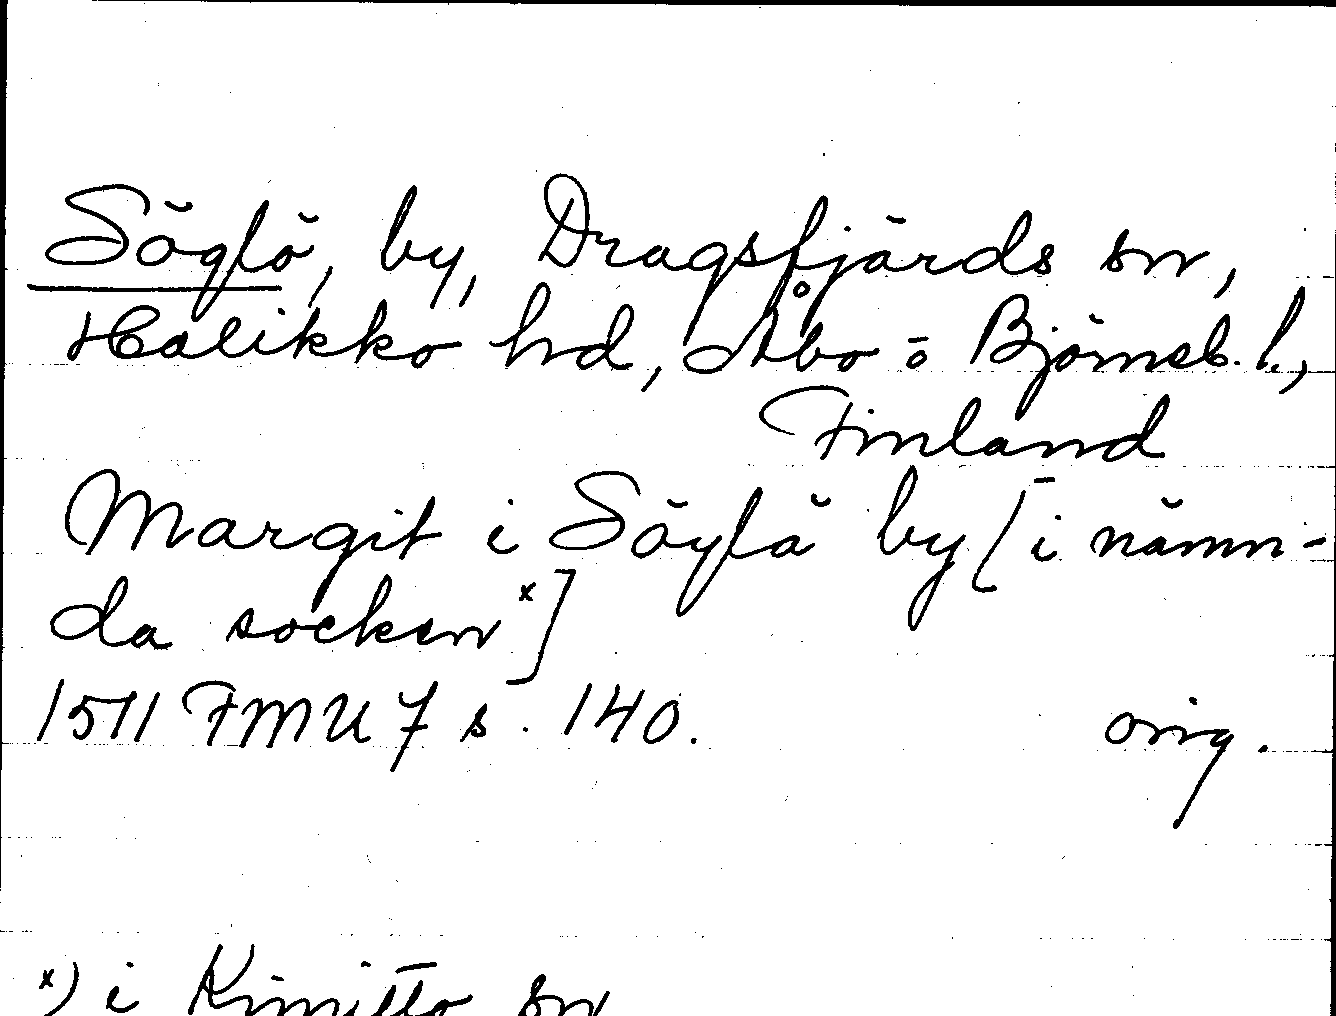 Söglö, by, Dragsfjärds sn,
Halikko hd, Åbo o Björneb. l.,
Finland
Margit i Söglä by [i nämn-
da socken x]
1511 FMU 7 s. 140. orig.
x) i Kimitto sn